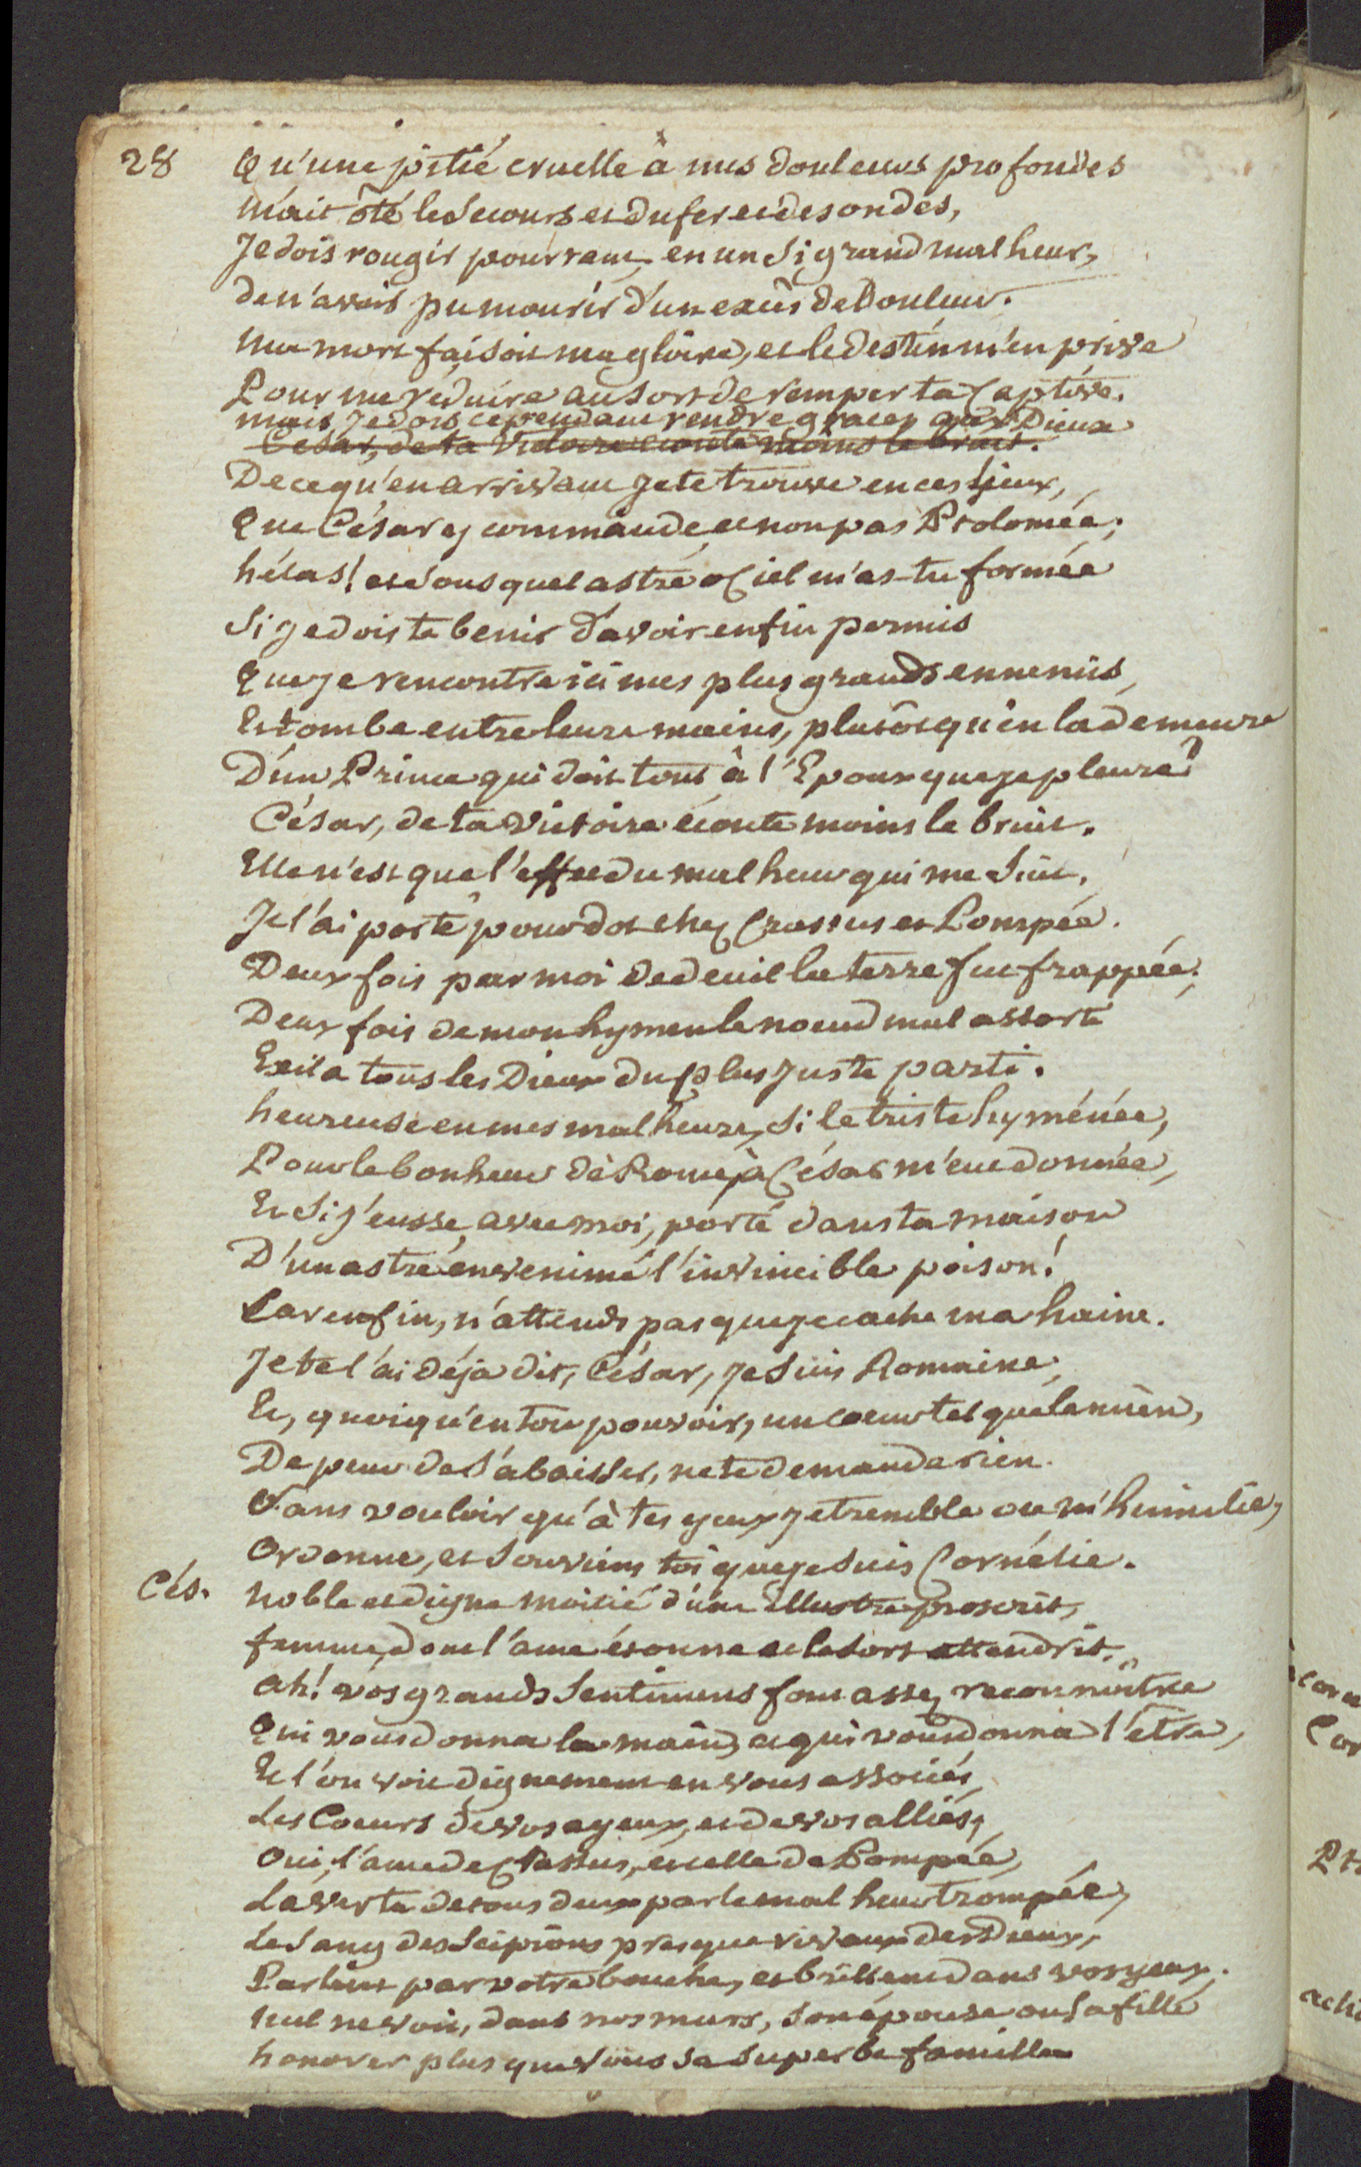 28
Qu'une pitié cruelle à mes douleurs profondes
M'ait ôté le secours et du fer et des ondes,
Je dois rougir pourtant, en un si grand malheur,
de n'avoir pu mourir d'un excès de Douleur.
Ma mort faisoit ma gloire, et le destin m'en prive
Pour me reduire au sort de ramper ta Captive.
mais, Je dois cependant rendre graces aux Dieux
César, de ta Victoire écoute moins le bruit.
De ce qu'en arrivant Je te trouve en ces lieux,
Que César y commande, et non pas Ptolomée;
hélas! et sous quel astre ô Ciel m'as-tu formée
Si je dois te benir d'avoir enfin permis
Que je rencontre ici mes plus grands ennemis,
Et tombe entre leurs mains, plutôt qu'en la demeure
D'un Prince qui doit tout à l'Epoux que je pleure?
César, de ta Victoire écoute moins le bruit.
Elle n'est que l'effet du malheur qui me Suit,
Je l'ai porté pour dot chez Crassus et Pompée.
Deux fois par moi de deuil la terre fut frappée;
Deux fois de mon hymen le noeud mal assorti
Exila tous les Dieux du plus Juste parti.
heureuse en mes malheurs, Si le triste hyménée,
Pour le bonheur de Rome, à César m'eut donnée,
Et Si j'eusse, avec moi, porté dans ta maison
D'un astre envenimé l'invincible poison!
Car enfin, n'attends pas que je cache ma haine.
Je te l'ai déjà dit, César, je Suis Romaine,
Et, quoiqu'en ton pouvoir, un coeur tel que le mien,
De peur de S'abaisser, ne te demande rien.
Sans vouloir qu'à tes yeux je tremble ou m'humilie,
Ordonne, et Souviens toi que je Suis Cornélie.
Cés. Noble et digne moitié d'un illustre proscrit,
femme, dont l'ame étonne et le sort attendrit,
Ah! vos grands Sentimens font assez reconnoître
Qui vous donna la main, et qui vous donna l'etre,
Et l'on voit dignement en vous associés,
Les Coeurs de vos ayeux, et de vos alliés,
Oui, l'ame de Crassus, et celle de Pompée,
La vertu de tous deux par le malheur trompée,
Le Sang des Scipions presque rivaux des Dieux,
Parlent par votre bouche, et brillent dans vos yeux.
Nul ne voit, dans nos murs, Son épouse ou Sa fille
honorer plus que vous Sa Superbe famille